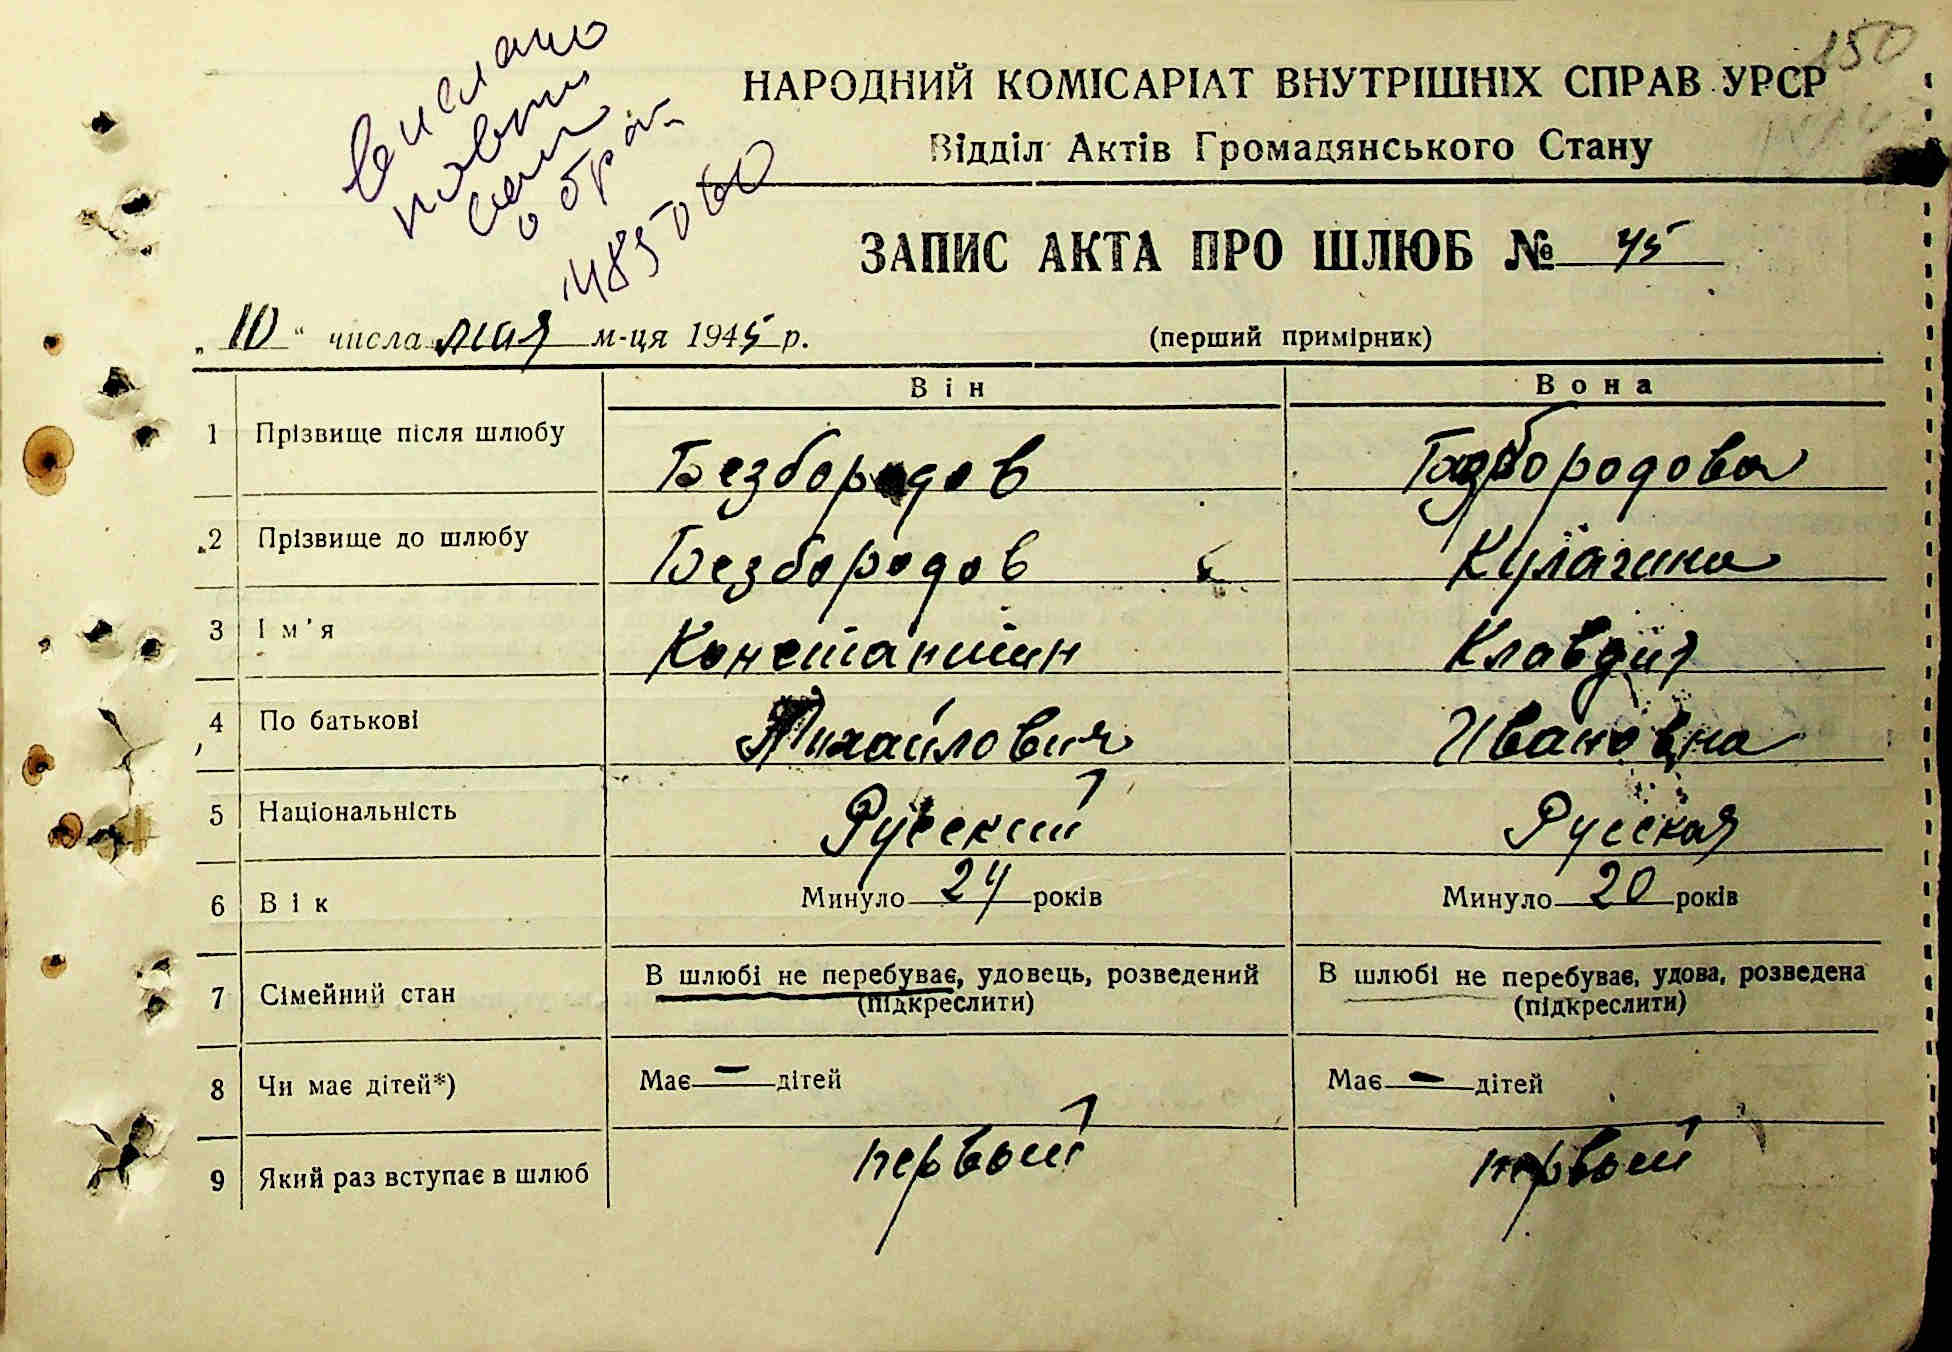 150
вислано
повтн
о брак
1485060
НАРОДНИЙ КОМІСАРІАТ ВНУТРІШНІХ СПРАВ УРСР
Відділ Актів Громадянського Стану
ЗАПИС АКТА ПРО ШЛЮБ № 45
„10“ числа мая м-ця 1945 р. (перший примірник)
Він Вона
1 Прізвище після шлюбу Безбородов Безбородова
2 Прізвище до шлюбу Безбородов Кулагина
3 Ім'я Константин Клавдия
4 По батькові Михайлович Ивановна
5 Національність Русский Русская
6 Вік Минуло 24 років Минуло 20 років
7 Сімейний стан В шлюбі не перебуває, удовець, розведений (підкреслити) В шлюбі не перебуває, удова, розведена (підкреслити)
8 Чи має дітей*) Має — дітей Має — дітей
9 Який раз вступає в шлюб первый первый